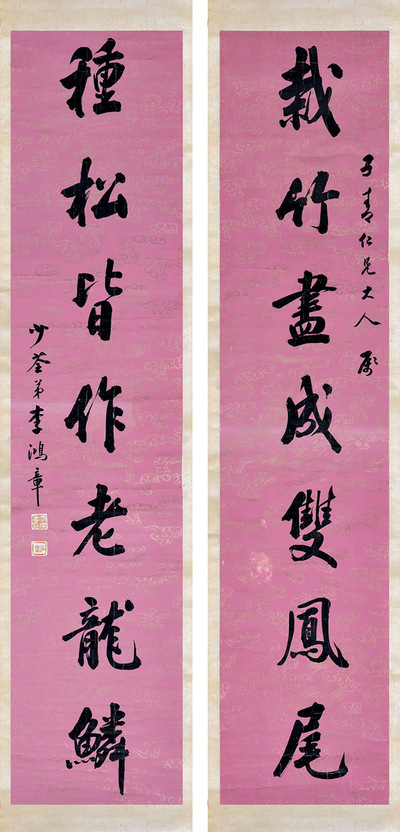 子青仁兄大人屬
栽竹盡成雙鳳尾
種松皆作老龍鱗
少荃弟李鴻章